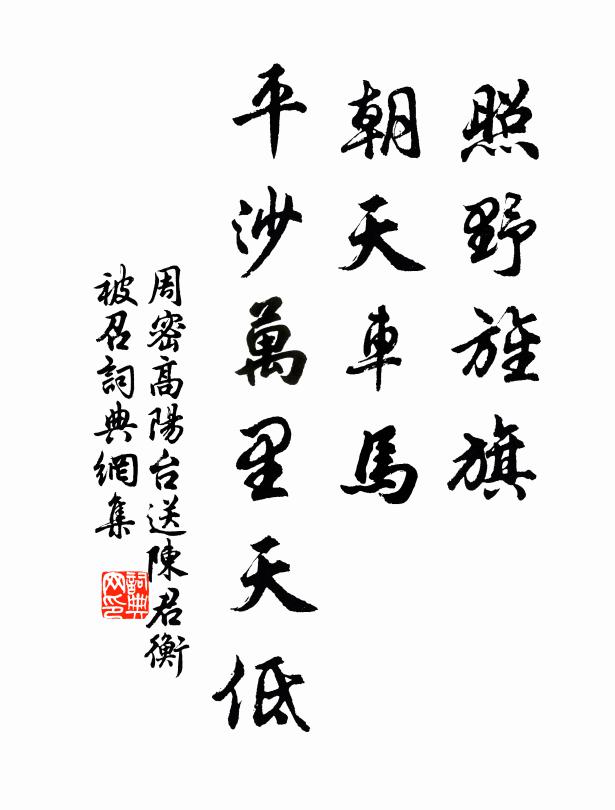 照野旌旗
朝天車馬
平沙萬里天低
周密高陽台送陳君衡
被召詞典網集
詞典
网印